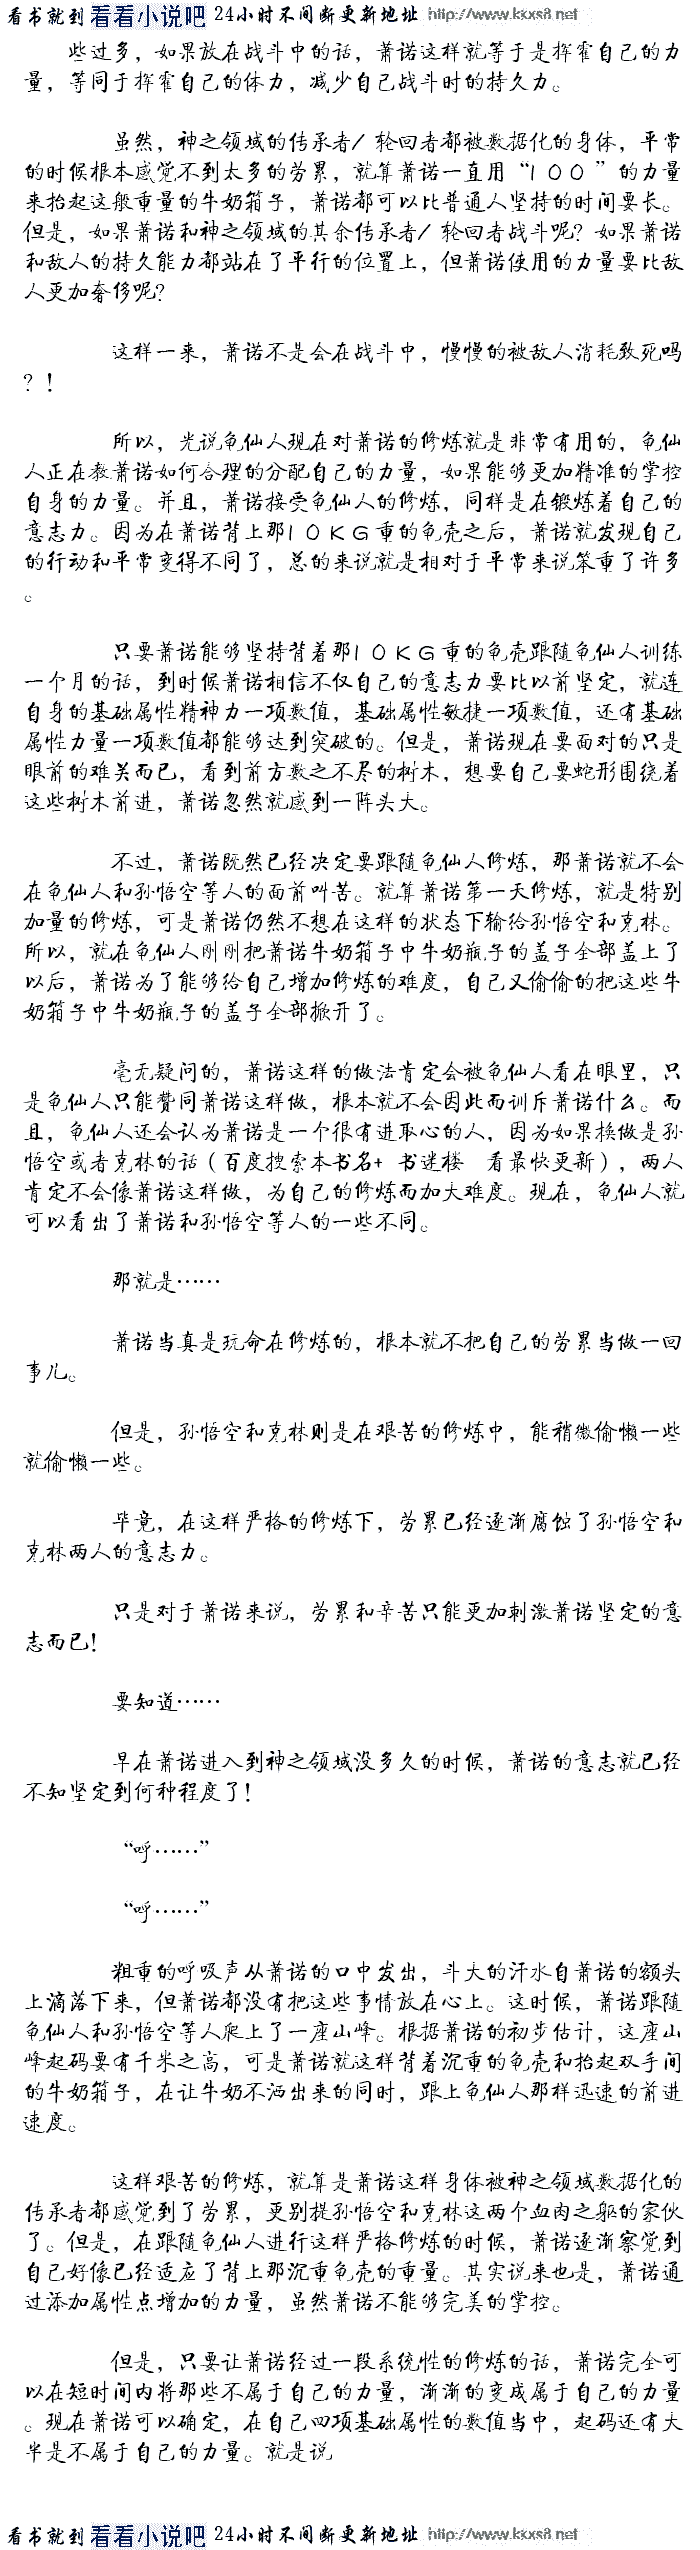 看书就到 看看小说吧 24小时不间断更新地址 http://www.kxxs8.net
些过多，如果放在战斗中的话，萧诺这样就等于是挥霍自己的力
量，等同于挥霍自己的体力，减少自己战斗时的持久力。
虽然，神之领域的传承者/ 轮回者都被数据化的身体，平常
的时候根本感觉不到太多的劳累，就算萧诺一直用“１００”的力量
来抬起这般重量的牛奶箱子，萧诺都可以比普通人坚持的时间要长。
但是，如果萧诺和神之领域的其余传承者/ 轮回者战斗呢？如果萧诺
和敌人的持久能力都站在了平行的位置上，但萧诺使用的力量要比敌
人更加奢侈呢？
这样一来，萧诺不是会在战斗中，慢慢的被敌人消耗致死吗
？！
所以，光说龟仙人现在对萧诺的修炼就是非常有用的，龟仙
人正在教萧诺如何合理的分配自己的力量，如果能够更加精准的掌控
自身的力量。并且，萧诺接受龟仙人的修炼，同样是在锻炼着自己的
意志力。因为在萧诺背上那１０ＫＧ重的龟壳之后，萧诺就发现自己
的行动和平常变得不同了，总的来说就是相对于平常来说笨重了许多
。
只要萧诺能够坚持背着那１０ＫＧ重的龟壳跟随龟仙人训练
一个月的话，到时候萧诺相信不仅自己的意志力要比以前坚定，就连
自身的基础属性精神力一项数值，基础属性敏捷一项数值，还有基础
属性力量一项数值都能够达到突破的。但是，萧诺现在要面对的只是
眼前的难关而已，看到前方数之不尽的树木，想要自己要蛇形围绕着
这些树木前进，萧诺忽然就感到一阵头大。
不过，萧诺既然已经决定要跟随龟仙人修炼，那萧诺就不会
在龟仙人和孙悟空等人的面前叫苦。就算萧诺第一天修炼，就是特别
加量的修炼，可是萧诺仍然不想在这样的状态下输给孙悟空和克林。
所以，就在龟仙人刚刚把萧诺牛奶箱子中牛奶瓶子的盖子全部盖上了
以后，萧诺为了能够给自己增加修炼的难度，自己又偷偷的把这些牛
奶箱子中牛奶瓶子的盖子全部掀开了。
毫无疑问的，萧诺这样的做法肯定会被龟仙人看在眼里，只
是龟仙人只能赞同萧诺这样做，根本就不会因此而训斥萧诺什么。而
且，龟仙人还会认为萧诺是一个很有进取心的人，因为如果换做是孙
悟空或者克林的话（百度搜索本书名+ 书迷楼 看最快更新），两人
肯定不会像萧诺这样做，为自己的修炼而加大难度。现在，龟仙人就
可以看出了萧诺和孙悟空等人的一些不同。
那就是……
萧诺当真是玩命在修炼的，根本就不把自己的劳累当做一回
事儿。
但是，孙悟空和克林则是在艰苦的修炼中，能稍微偷懒一些
就偷懒一些。
毕竟，在这样严格的修炼下，劳累已经逐渐腐蚀了孙悟空和
克林两人的意志力。
只是对于萧诺来说，劳累和辛苦只能更加刺激萧诺坚定的意
志而已！
要知道……
早在萧诺进入到神之领域没多久的时候，萧诺的意志就已经
不知坚定到何种程度了！
“呼……”
“呼……”
粗重的呼吸声从萧诺的口中发出，斗大的汗水自萧诺的额头
上滴落下来，但萧诺都没有把这些事情放在心上。这时候，萧诺跟随
龟仙人和孙悟空等人爬上了一座山峰。根据萧诺的初步估计，这座山
峰起码要有千米之高，可是萧诺就这样背着沉重的龟壳和抬起双手间
的牛奶箱子，在让牛奶不洒出来的同时，跟上龟仙人那样迅速的前进
速度。
这样艰苦的修炼，就算是萧诺这样身体被神之领域数据化的
传承者都感觉到了劳累，更别提孙悟空和克林这两个血肉之躯的家伙
了。但是，在跟随龟仙人进行这样严格修炼的时候，萧诺逐渐察觉到
自己好像已经适应了背上那沉重龟壳的重量。其实说来也是，萧诺通
过添加属性点增加的力量，虽然萧诺不能够完美的掌控。
但是，只要让萧诺经过一段系统性的修炼的话，萧诺完全可
以在短时间内将那些不属于自己的力量，渐渐的变成属于自己的力量
。现在萧诺可以确定，在自己四项基础属性的数值当中，起码还有大
半是不属于自己的力量。就是说
看书就到 看看小说吧 24小时不间断更新地址 http://www.kxxs8.net